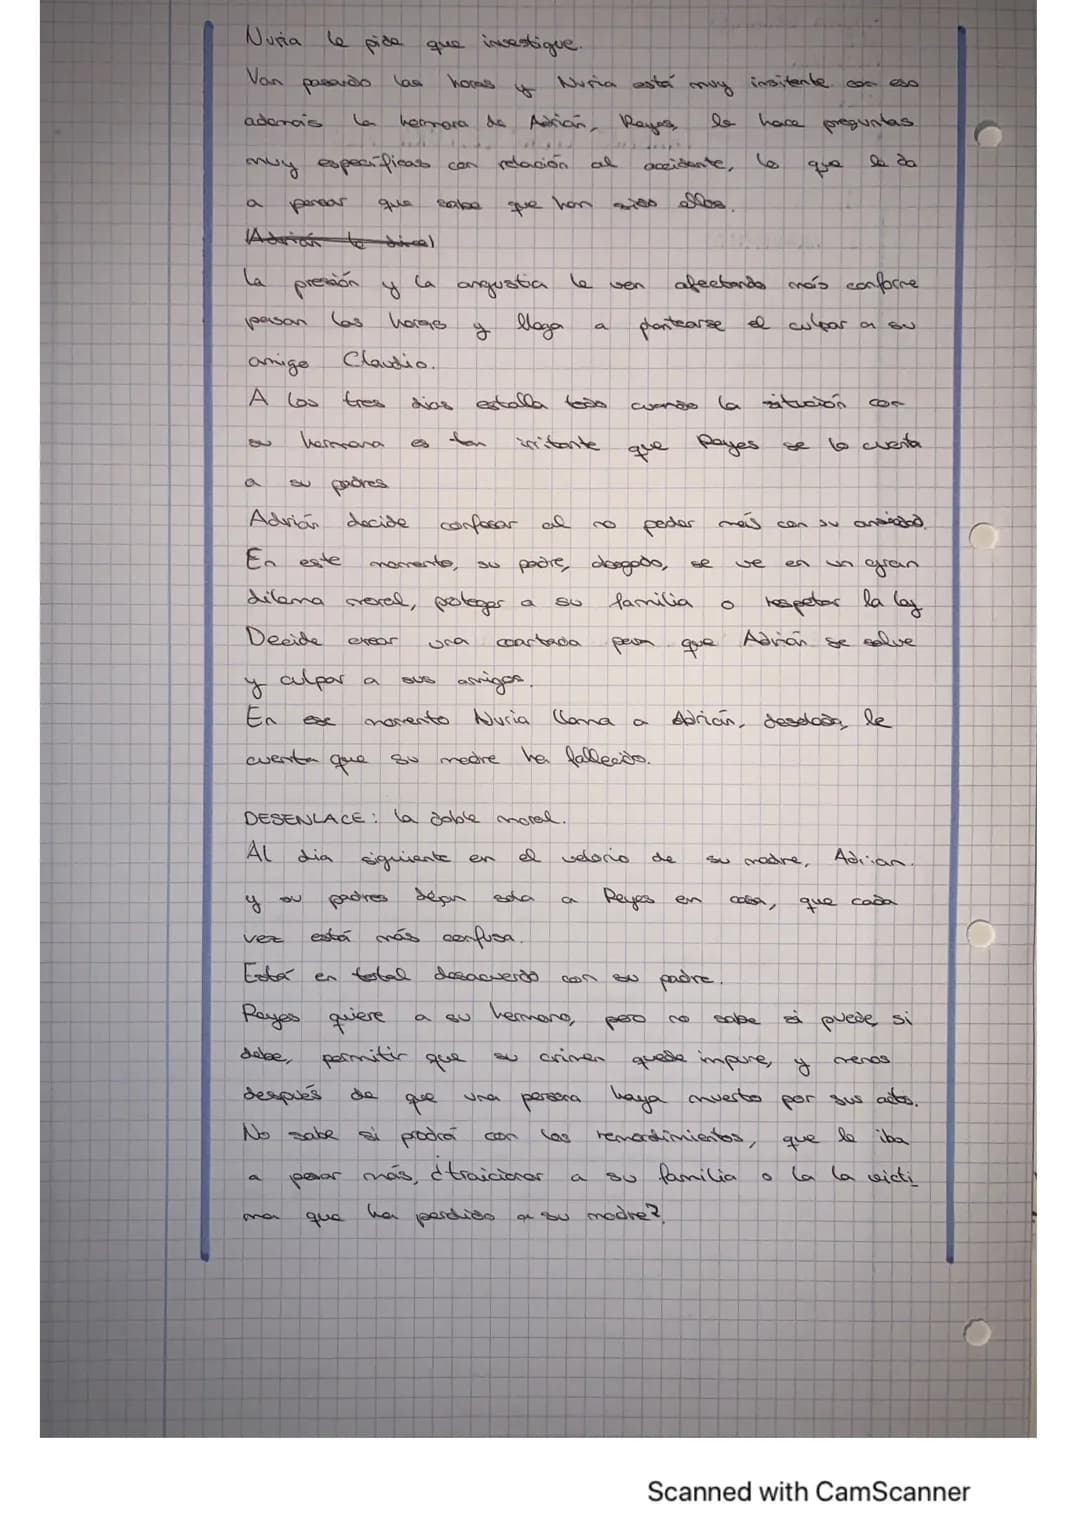 Nuria le pide que investigue.
Van pasando las horas y Nuria está muy insitente con eso
además la hermana de Adrián, Reyes, le hace preguntas
muy específicas con relación al accidente, lo que le da
a pensar que sabe que han sido ellos.
(Adrián le dice)
La presión y la angustia le ven afectando más conforme
pasan las horas y llega a plantearse el culpar a su
amigo Claudio.
A los tres dias estalla todo cuando la situación con
su hermana es tan irritante que Reyes se lo cuenta
a su padres
Adrián decide confesar al no poder más con su ansiedad.
En este momento, su padre, abogado, se ve en un gran
dilema moral, proteger a su familia o respetar la ley
Decide crear una coartada para que Adrián se salve
y culpar a sus amigos.
En ese momento Nuria llama a Adrián, desolada, le
cuenta que su madre ha fallecido.
DESENLACE: la doble moral.
Al dia siguiente en el velorio de su madre, Adrian.
y su padres dejan sola a Reyes en casa, que cada
vez está más confusa.
Está en total desacuerdo con su padre.
Reyes quiere a su hermano, pero no sabe si puede, si
debe, permitir que su crimen quede impune, y menos
después de que una persona haya muerto por sus actos.
No sabe si podrá con los remordimientos, que le iba
a pesar más, ¿traicionar a su familia o la la vícti_
ma que ha perdido a su madre?
Scanned with CamScanner